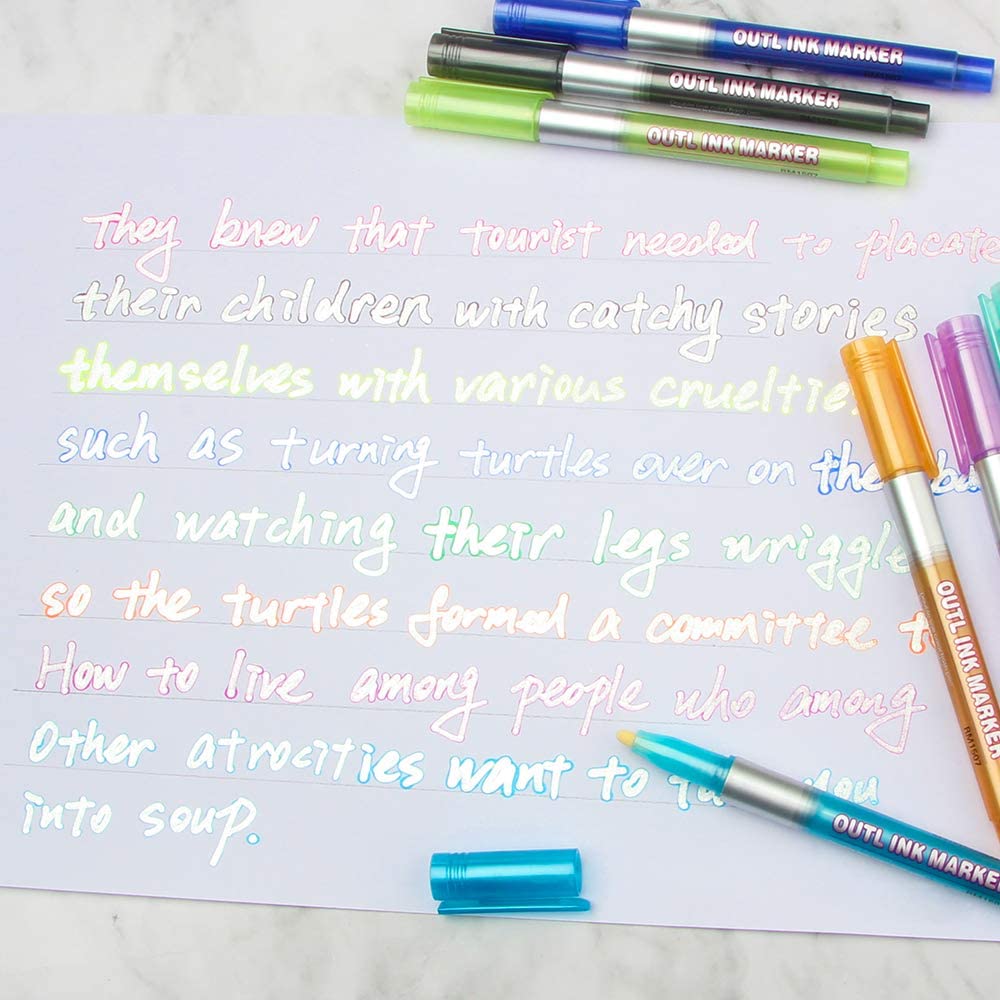 OUTL INK MARKER
RM1507
OUTL INK MARKER
OUTL INK MARKER
RM1507
They knew that tourist needed to placate
their children with catchy stories
themselves with various cruelties
such as turning turtles over on the
and watching their legs wriggle
so the turtles formed a committee t
How to live among people who among
Other atrocities want to you
into soup.
OUTL INK MARKER
RM1507
OUTL INK MARKER